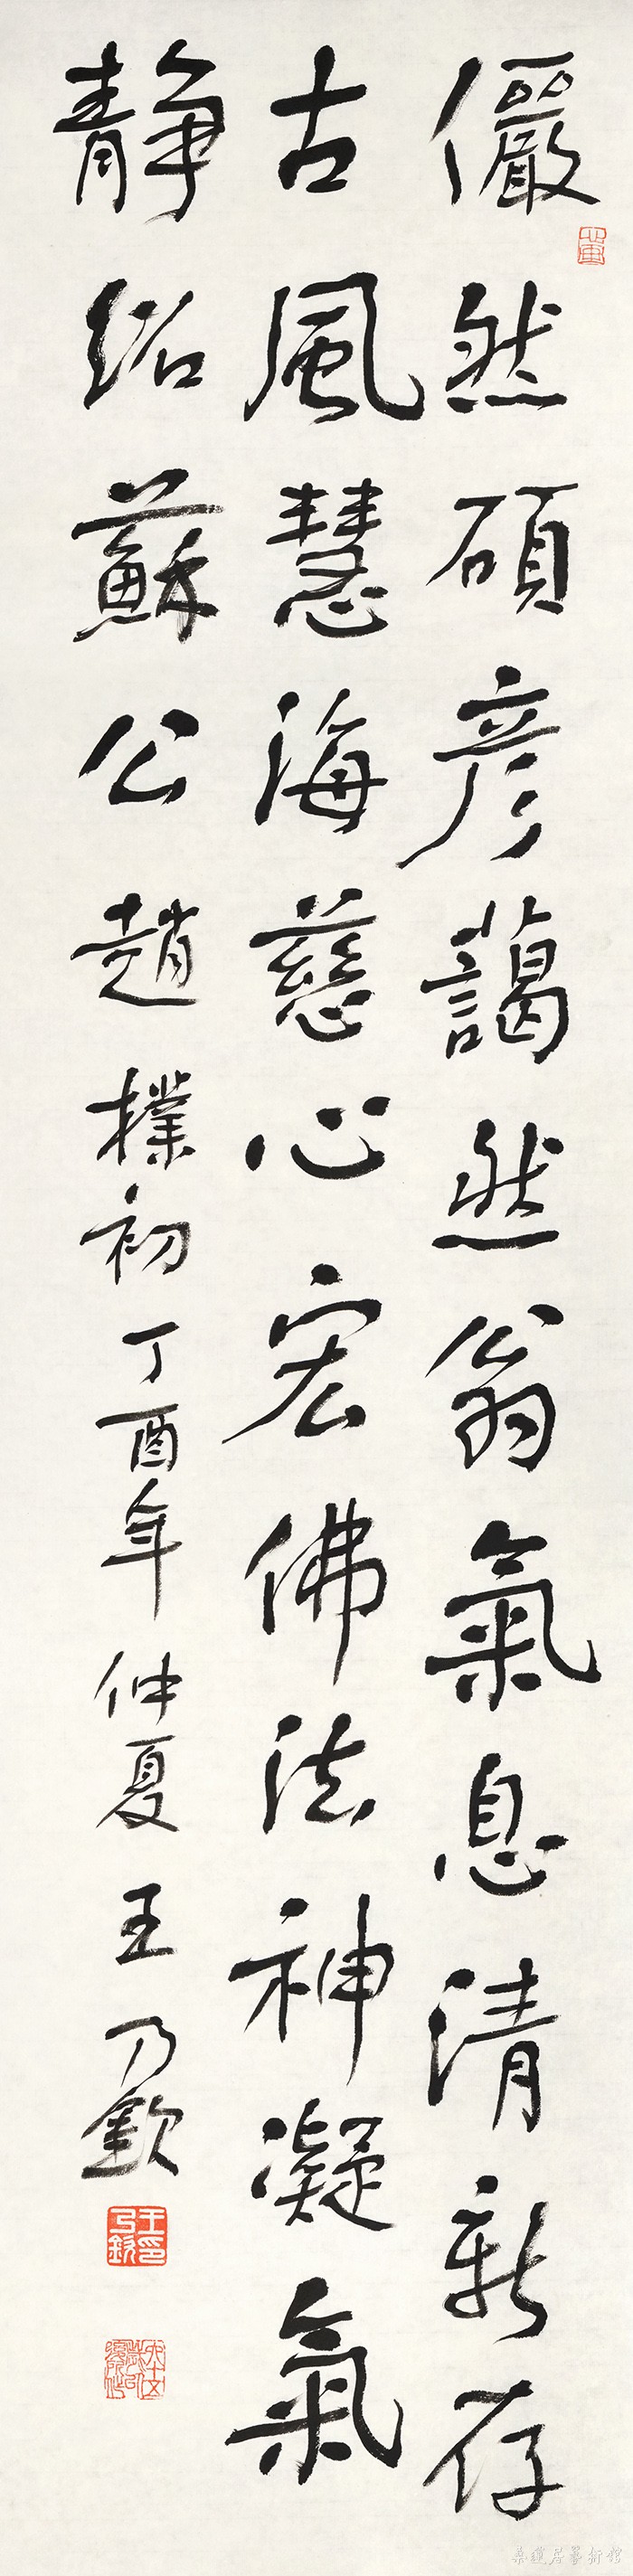 儼然碩彦藹然翁氣息清新存
古風慧海慈心宏佛法神凝氣
静紹蘇公趙樸初丁酉年仲夏王乃欽
王乃欽印